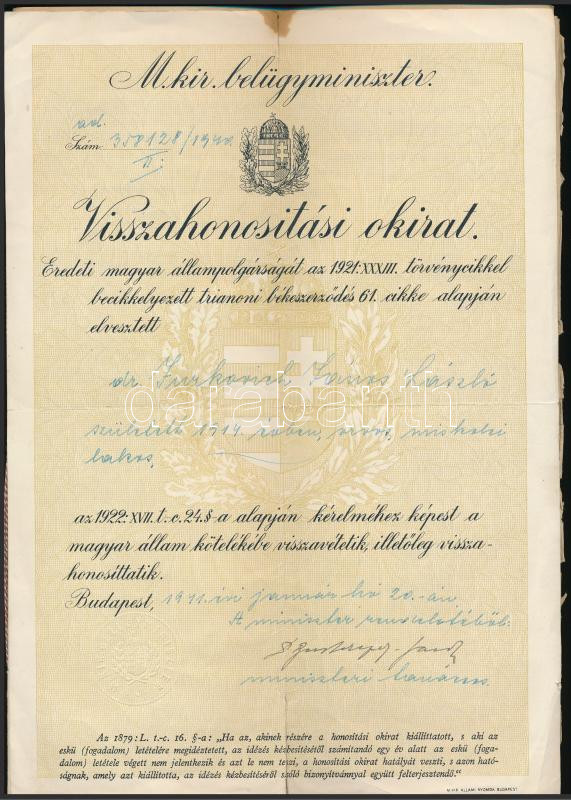 M. kir. belügyminiszter.
ad.
Szám: 358128/1940.
II.
Visszahonosítási okirat.
Eredeti magyar állampolgárságát az 1921:XXXIII. törvénycikkel
becikkelyezett trianoni békeszerződés 61. cikke alapján
elvesztett
dr. Jurkovich János László
databanth
született 1914. évben, orvos, miskolci
lakos,
az 1922:XVII. t.-c. 24. §-a alapján kérelméhez képest a
magyar állam kötelékébe visszavétetik, illetőleg vissza-
honosíttatik.
Budapest, 1941. évi január hó 20.-án.
A miniszter rendeletéből:
miniszteri tanácsos.
Az 1879: L. t.-c. 16. §-a: „Ha az, akinek részére a honosítási okirat kiállíttatott, s aki az
eskü (fogadalom) letételére megidéztetett, az idézés kézbesítésétől számítandó egy év alatt az eskü (foga-
dalom) letétele végett nem jelentkezik és azt le nem teszi, a honosítási okirat hatályát veszti, s azon ható-
ságnak, amely azt kiállította, az idézés kézbesítéséről szóló bizonyítvánnyal együtt felterjesztendő.“
M. KIR. ÁLLAMI NYOMDA, BUDAPEST